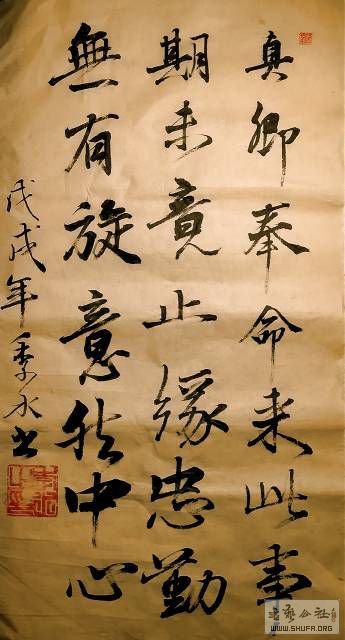 真卿奉命来此事
期未竟止缘忠勤
無有旋意然中心
戊戌年季书
书艺公社
WWW.SHUFA.ORG